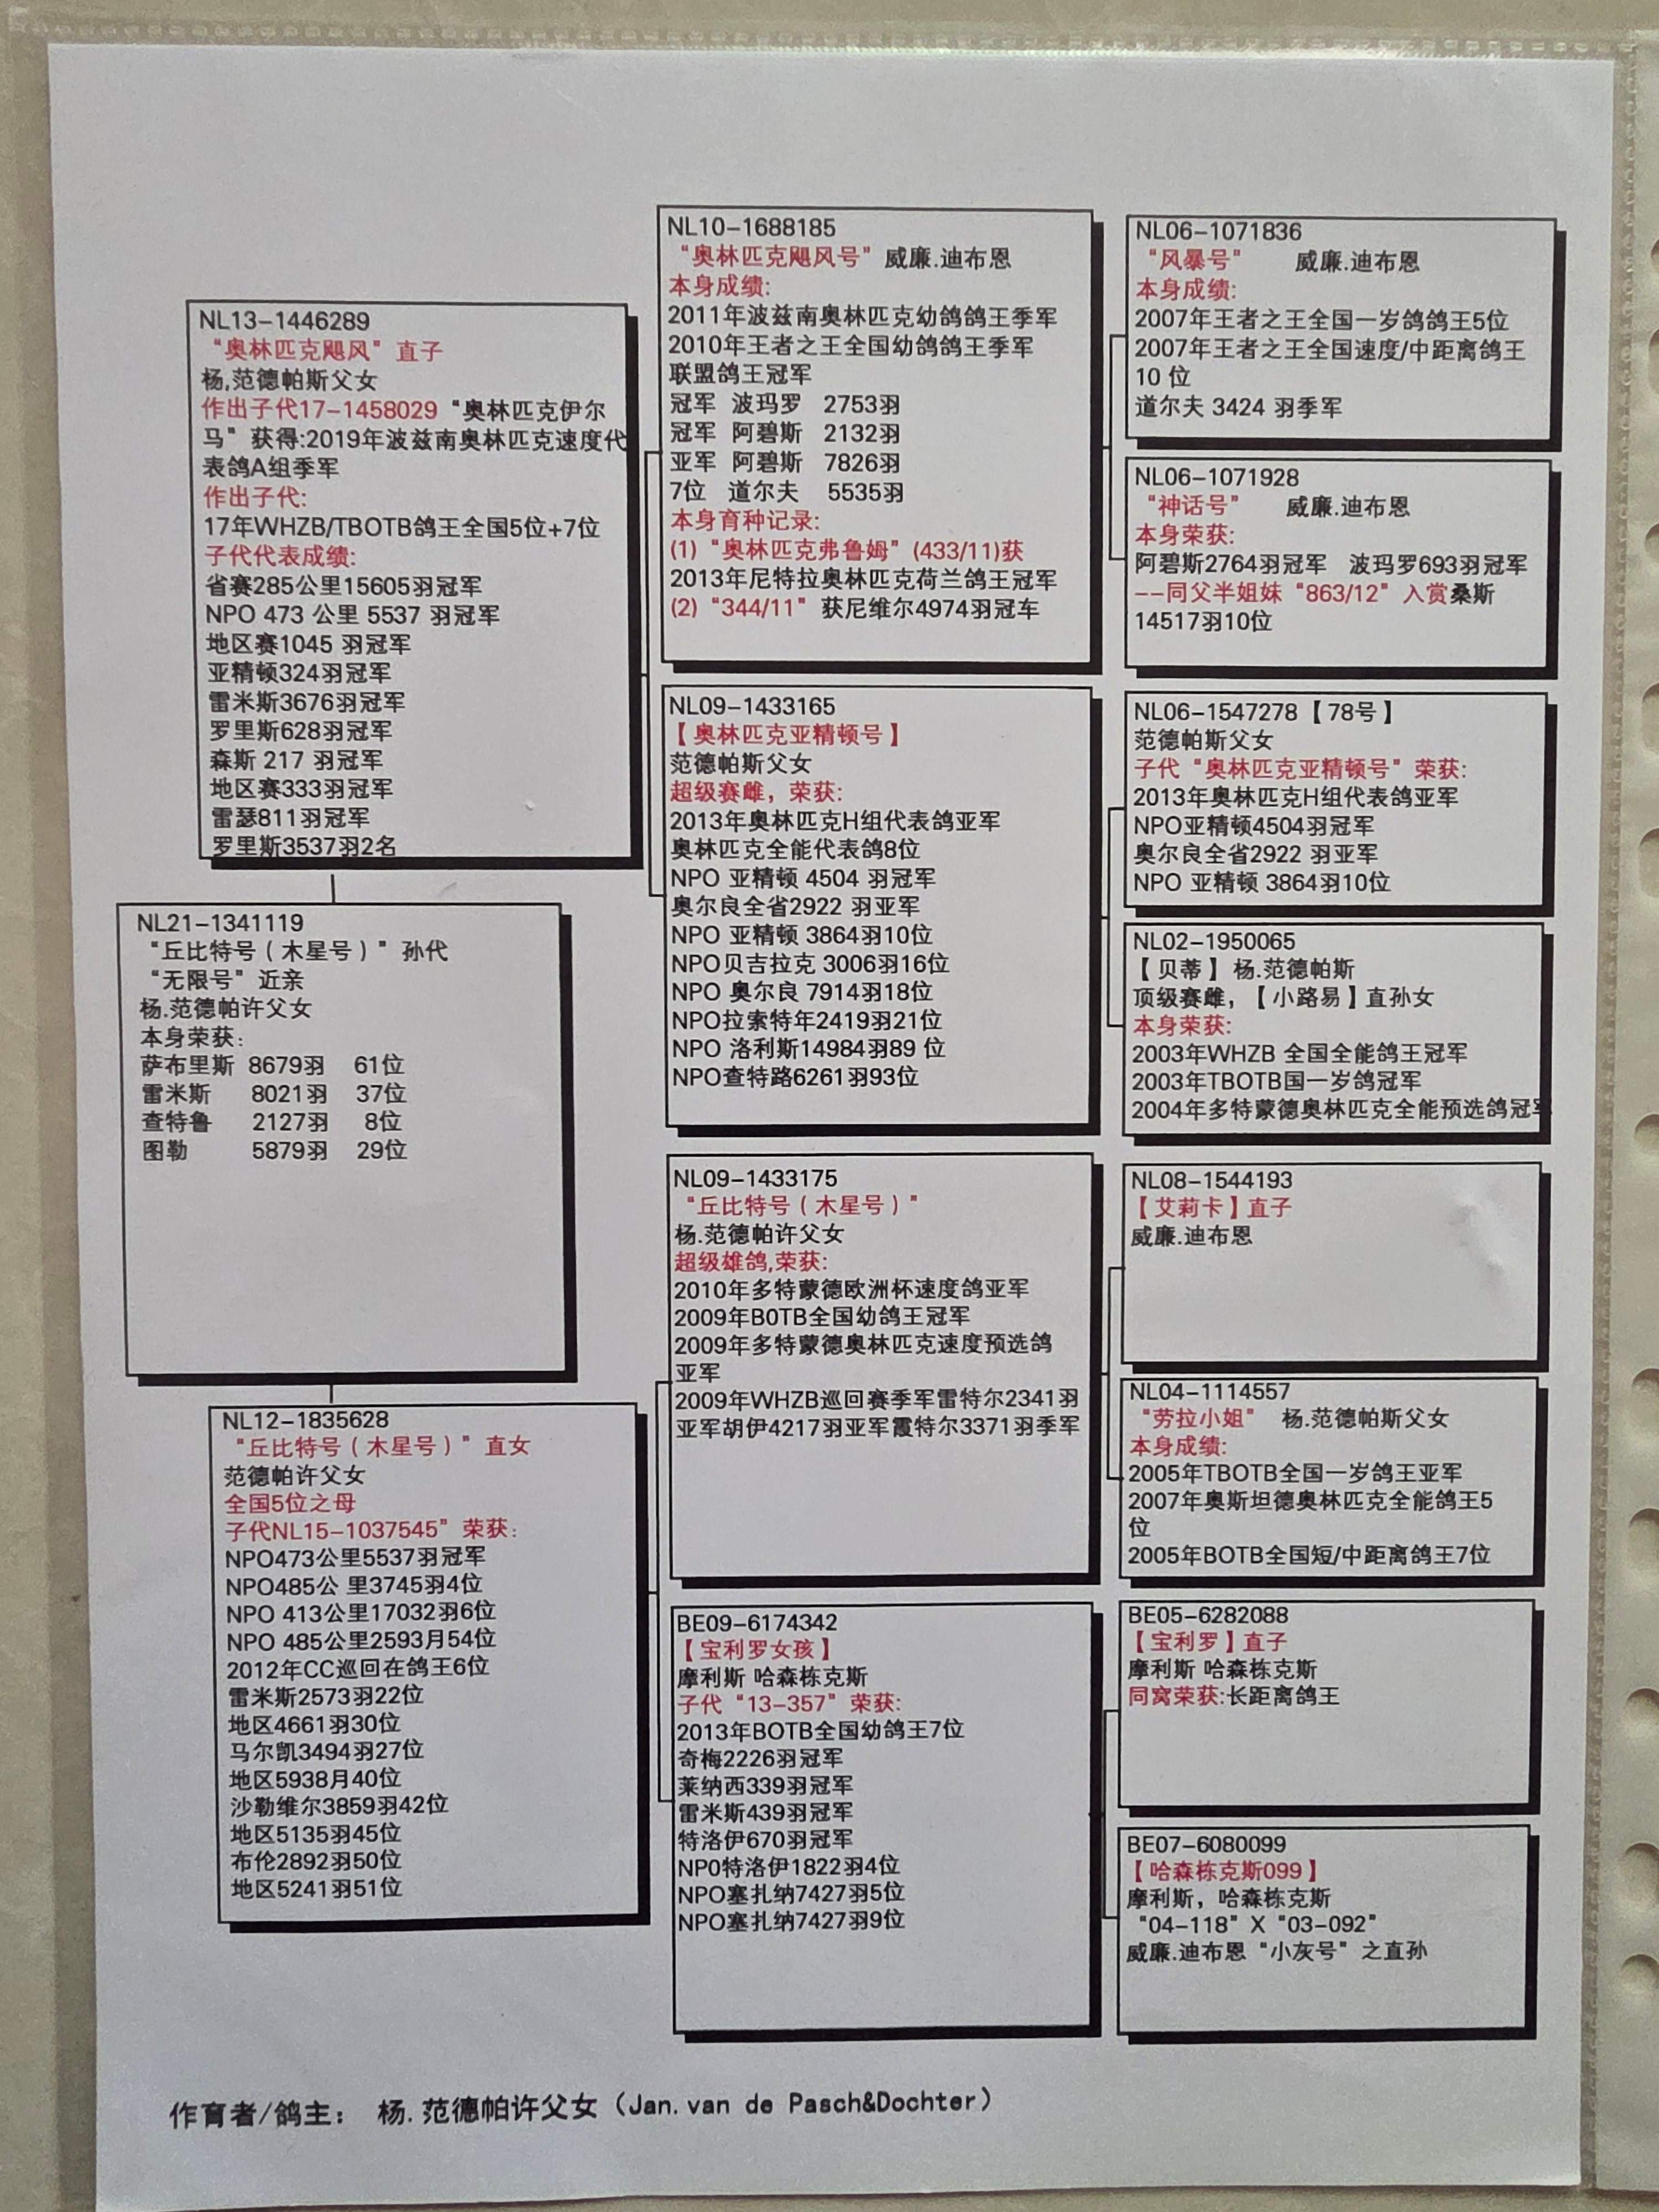 NL13-1446289
“奥林匹克飓风”直子
杨,范德帕斯父女
作出子代17-1458029“奥林匹克伊尔
马”获得:2019年波兹南奥林匹克速度代
表鸽A组季军
作出子代:
17年WHZB/TBOTB鸽王全国5位+7位
子代代表成绩:
省赛285公里15605羽冠军
NPO 473 公里 5537 羽冠军
地区赛1045 羽冠军
亚精顿324羽冠军
雷米斯3676羽冠军
罗里斯628羽冠军
森斯 217 羽冠军
地区赛333羽冠军
雷瑟811羽冠军
罗里斯3537羽2名
NL21-1341119
“丘比特号（木星号）”孙代
“无限号”近亲
杨.范德帕许父女
本身荣获:
萨布里斯 8679羽 61位
雷米斯 8021羽 37位
查特鲁 2127羽 8位
图勒 5879羽 29位
NL12-1835628
“丘比特号（木星号）”直女
范德帕许父女
全国5位之母
子代NL15-1037545”荣获:
NPO473公里5537羽冠军
NPO485公 里3745羽4位
NPO 413公里17032羽6位
NPO 485公里2593月54位
2012年CC巡回在鸽王6位
雷米斯2573羽22位
地区4661羽30位
马尔凯3494羽27位
地区5938月40位
沙勒维尔3859羽42位
地区5135羽45位
布伦2892羽50位
地区5241羽51位
NL10-1688185
“奥林匹克飓风号”威廉.迪布恩
本身成绩:
2011年波兹南奥林匹克幼鸽鸽王季军
2010年王者之王全国幼鸽鸽王季军
联盟鸽王冠军
冠军 波玛罗 2753羽
冠军 阿碧斯 2132羽
亚军 阿碧斯 7826羽
7位 道尔夫 5535羽
本身育种记录:
(1)“奥林匹克弗鲁姆”(433/11)获
2013年尼特拉奥林匹克荷兰鸽王冠军
(2)“344/11”获尼维尔4974羽冠车
NL09-1433165
【奥林匹克亚精顿号】
范德帕斯父女
超级赛雌，荣获:
2013年奥林匹克H组代表鸽亚军
奥林匹克全能代表鸽8位
NPO 亚精顿 4504 羽冠军
奥尔良全省2922 羽亚军
NPO 亚精顿 3864羽10位
NPO贝吉拉克 3006羽16位
NPO 奥尔良 7914羽18位
NPO拉索特年2419羽21位
NPO 洛利斯14984羽89 位
NPO查特路6261羽93位
NL09-1433175
“丘比特号（木星号）”
杨.范德帕许父女
超级雄鸽,荣获:
2010年多特蒙德欧洲杯速度鸽亚军
2009年B0TB全国幼鸽王冠军
2009年多特蒙德奥林匹克速度预选鸽
亚军
2009年WHZB巡回赛季军雷特尔2341羽
亚军胡伊4217羽亚军霞特尔3371羽季军
BE09-6174342
【宝利罗女孩】
摩利斯 哈森栋克斯
子代“13-357”荣获:
2013年BOTB全国幼鸽王7位
奇梅2226羽冠军
莱纳西339羽冠军
雷米斯439羽冠军
特洛伊670羽冠军
NP0特洛伊1822羽4位
NPO塞扎纳7427羽5位
NPO塞扎纳7427羽9位
NL06-1071836
“风暴号” 威廉.迪布恩
本身成绩:
2007年王者之王全国一岁鸽鸽王5位
2007年王者之王全国速度/中距离鸽王
10 位
道尔夫 3424 羽季军
NL06-1071928
“神话号” 威廉.迪布恩
本身荣获:
阿碧斯2764羽冠军 波玛罗693羽冠军
--同父半姐妹“863/12”入赏桑斯
14517羽10位
NL06-1547278【78号】
范德帕斯父女
子代“奥林匹克亚精顿号”荣获:
2013年奥林匹克H组代表鸽亚军
NPO亚精顿4504羽冠军
奥尔良全省2922 羽亚军
NPO 亚精顿 3864羽10位
NL02-1950065
【贝蒂】杨.范德帕斯
顶级赛雌，【小路易】直孙女
本身荣获:
2003年WHZB 全国全能鸽王冠军
2003年TBOTB国一岁鸽冠军
2004年多特蒙德奥林匹克全能预选鸽冠军
NL08-1544193
【艾莉卡】直子
威廉.迪布恩
NL04-1114557
“劳拉小姐” 杨.范德帕斯父女
本身成绩:
2005年TBOTB全国一岁鸽王亚军
2007年奥斯坦德奥林匹克全能鸽王5
位
2005年BOTB全国短/中距离鸽王7位
BE05-6282088
【宝利罗】直子
摩利斯 哈森栋克斯
同窝荣获:长距离鸽王
BE07-6080099
【哈森栋克斯099】
摩利斯，哈森栋克斯
“04-118”X“03-092”
威廉.迪布恩“小灰号”之直孙
作育者/鸽主: 杨.范德帕许父女（Jan.van de Pasch&Dochter）